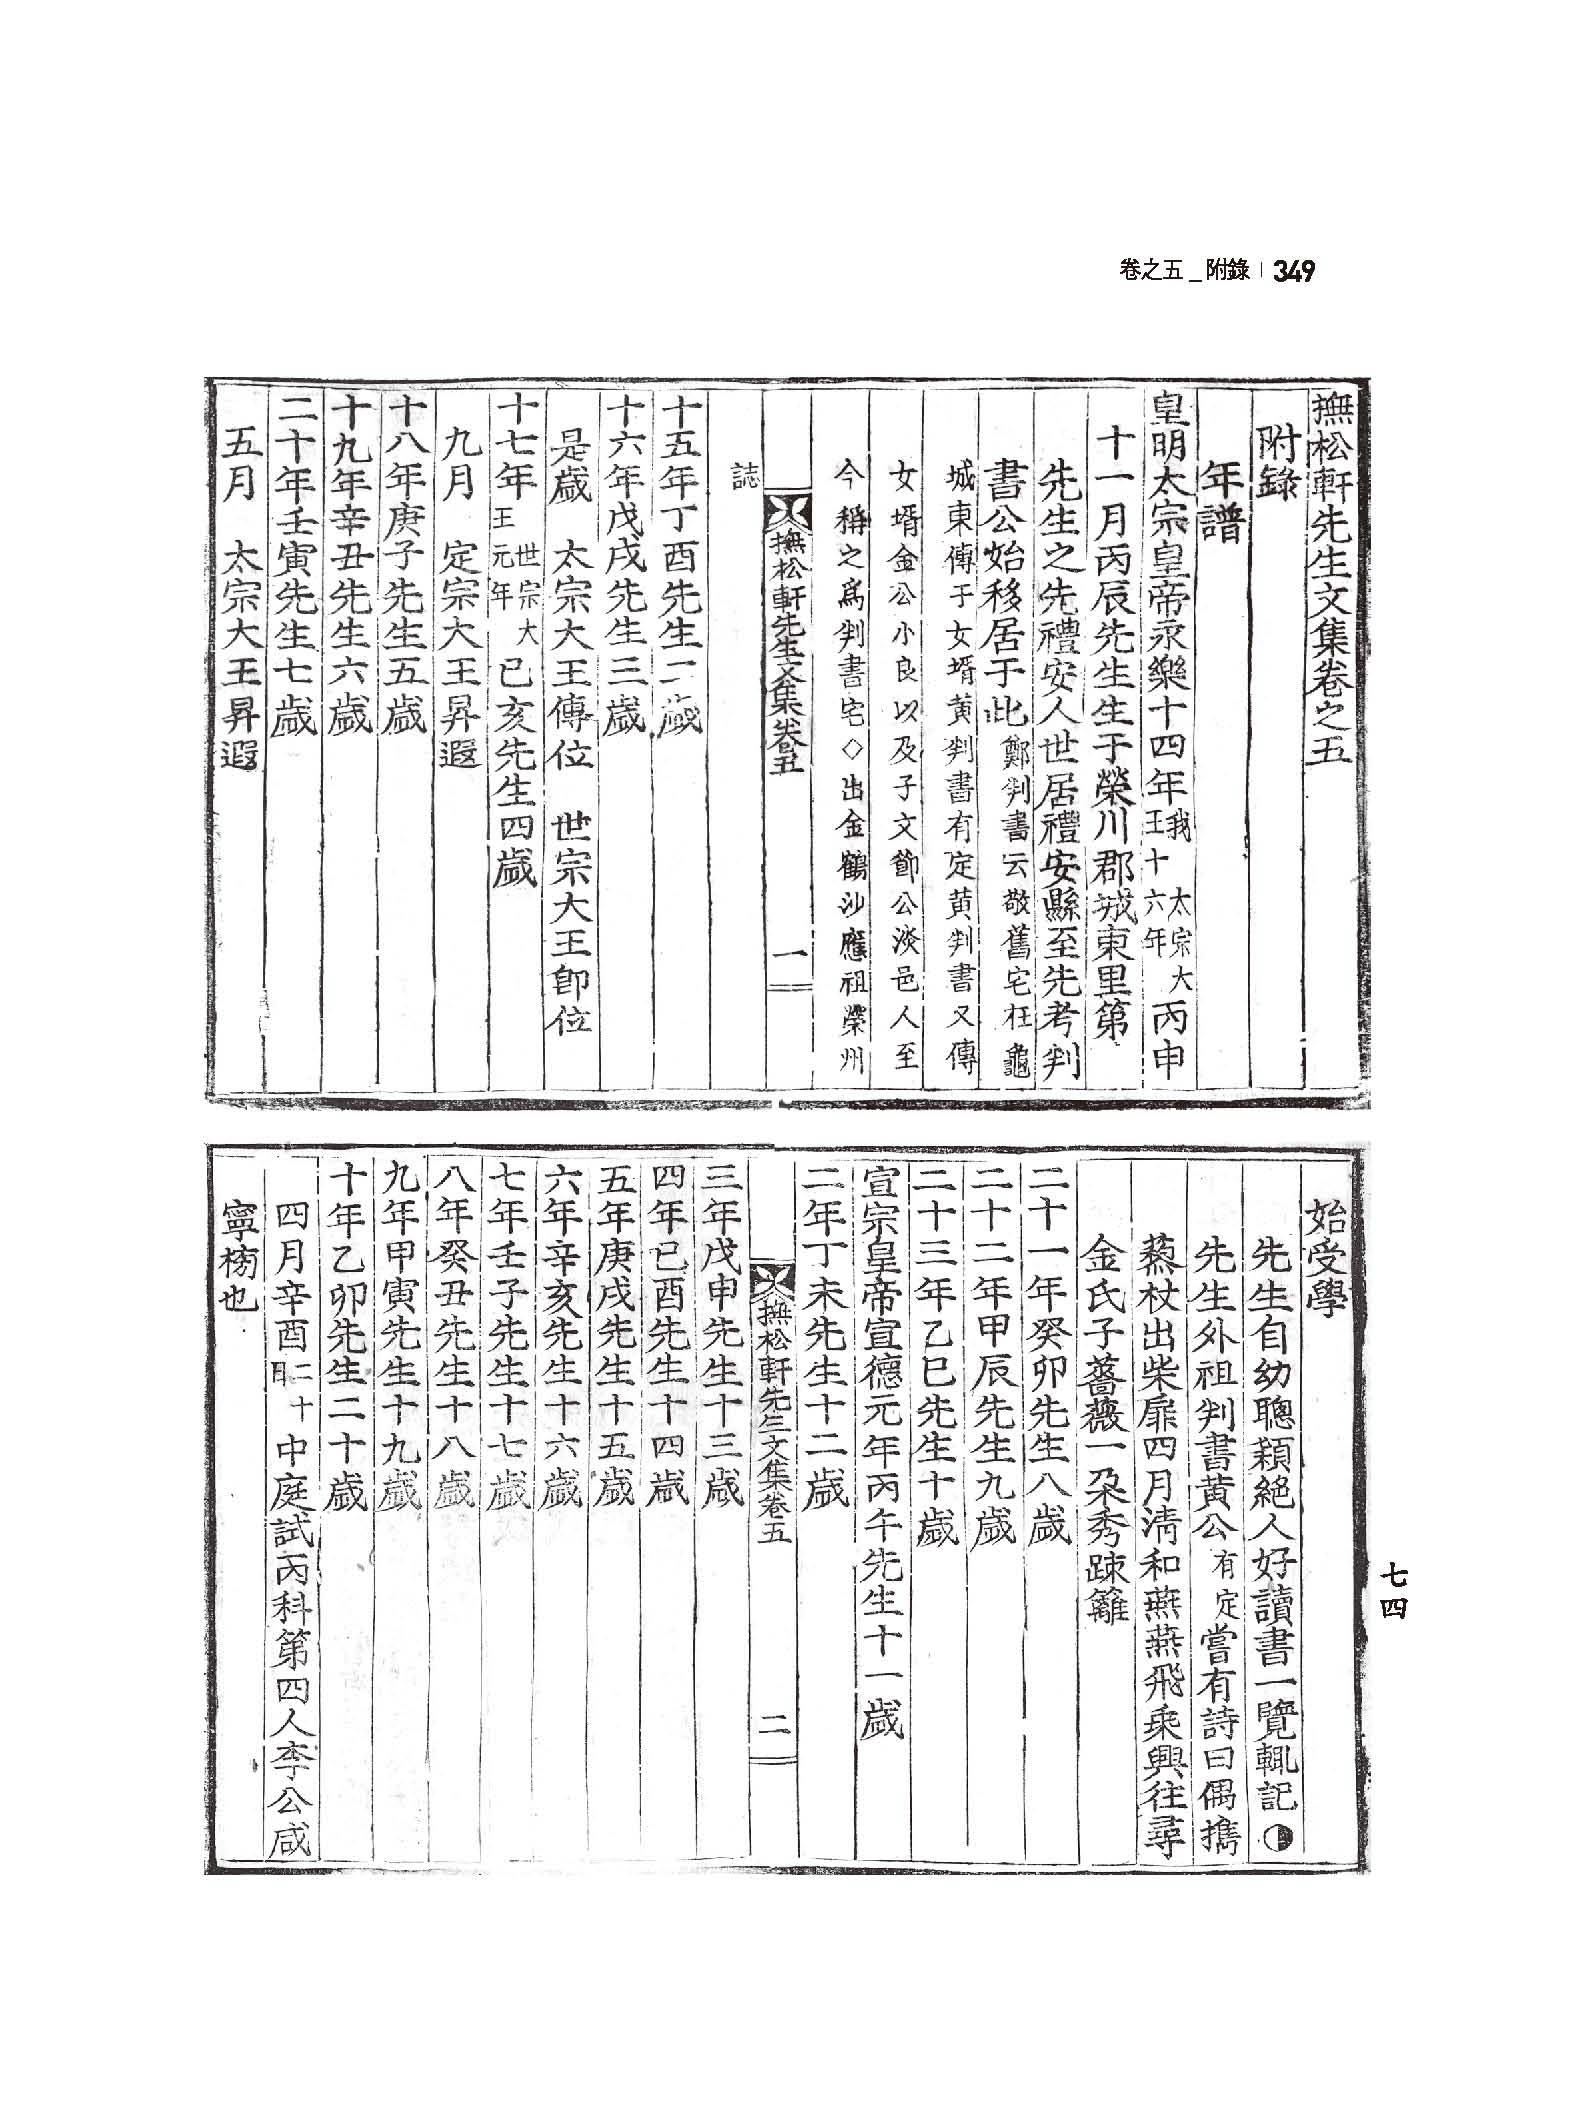 卷之五 _ 附錄 | 349
撫松軒先生文集卷之五
附錄
年譜
皇明太宗皇帝永樂十四年我 太宗大王十六年丙申
十一月丙辰先生生于榮川郡城東里第
先生之先禮安人世居禮安縣至先考判
書公始移居于此鄭判書云敬舊宅在龜
城東傳于女壻黃判書有定黃判書又傳
女壻金公小良以及子文節公淡邑人至
今稱之爲判書宅◇出金鶴沙應祖榮州
誌
撫松軒先生文集卷五 一
十五年丁酉先生二歲
十六年戊戌先生三歲
是歲 太宗大王傳位 世宗大王卽位
十七年世宗大王元年己亥先生四歲
九月 定宗大王昇遐
十八年庚子先生五歲
十九年辛丑先生六歲
二十年壬寅先生七歲
五月 太宗大王昇遐
始受學
先生自幼聰穎絕人好讀書一覽輒記◑
先生外祖判書黃公有定嘗有詩曰偶攜
藜杖出柴扉四月淸和燕燕飛乘興往尋
金氏子薔薇一朶秀疎籬
二十一年癸卯先生八歲
二十二年甲辰先生九歲
二十三年乙巳先生十歲
宣宗皇帝宣德元年丙午先生十一歲
二年丁未先生十二歲
撫松軒先生文集卷五 二
三年戊申先生十三歲
四年己酉先生十四歲
五年庚戌先生十五歲
六年辛亥先生十六歲
七年壬子先生十七歲
八年癸丑先生十八歲
九年甲寅先生十九歲
十年乙卯先生二十歲
四月辛酉二十 中庭試丙科第四人李公咸
寧榜也
七四